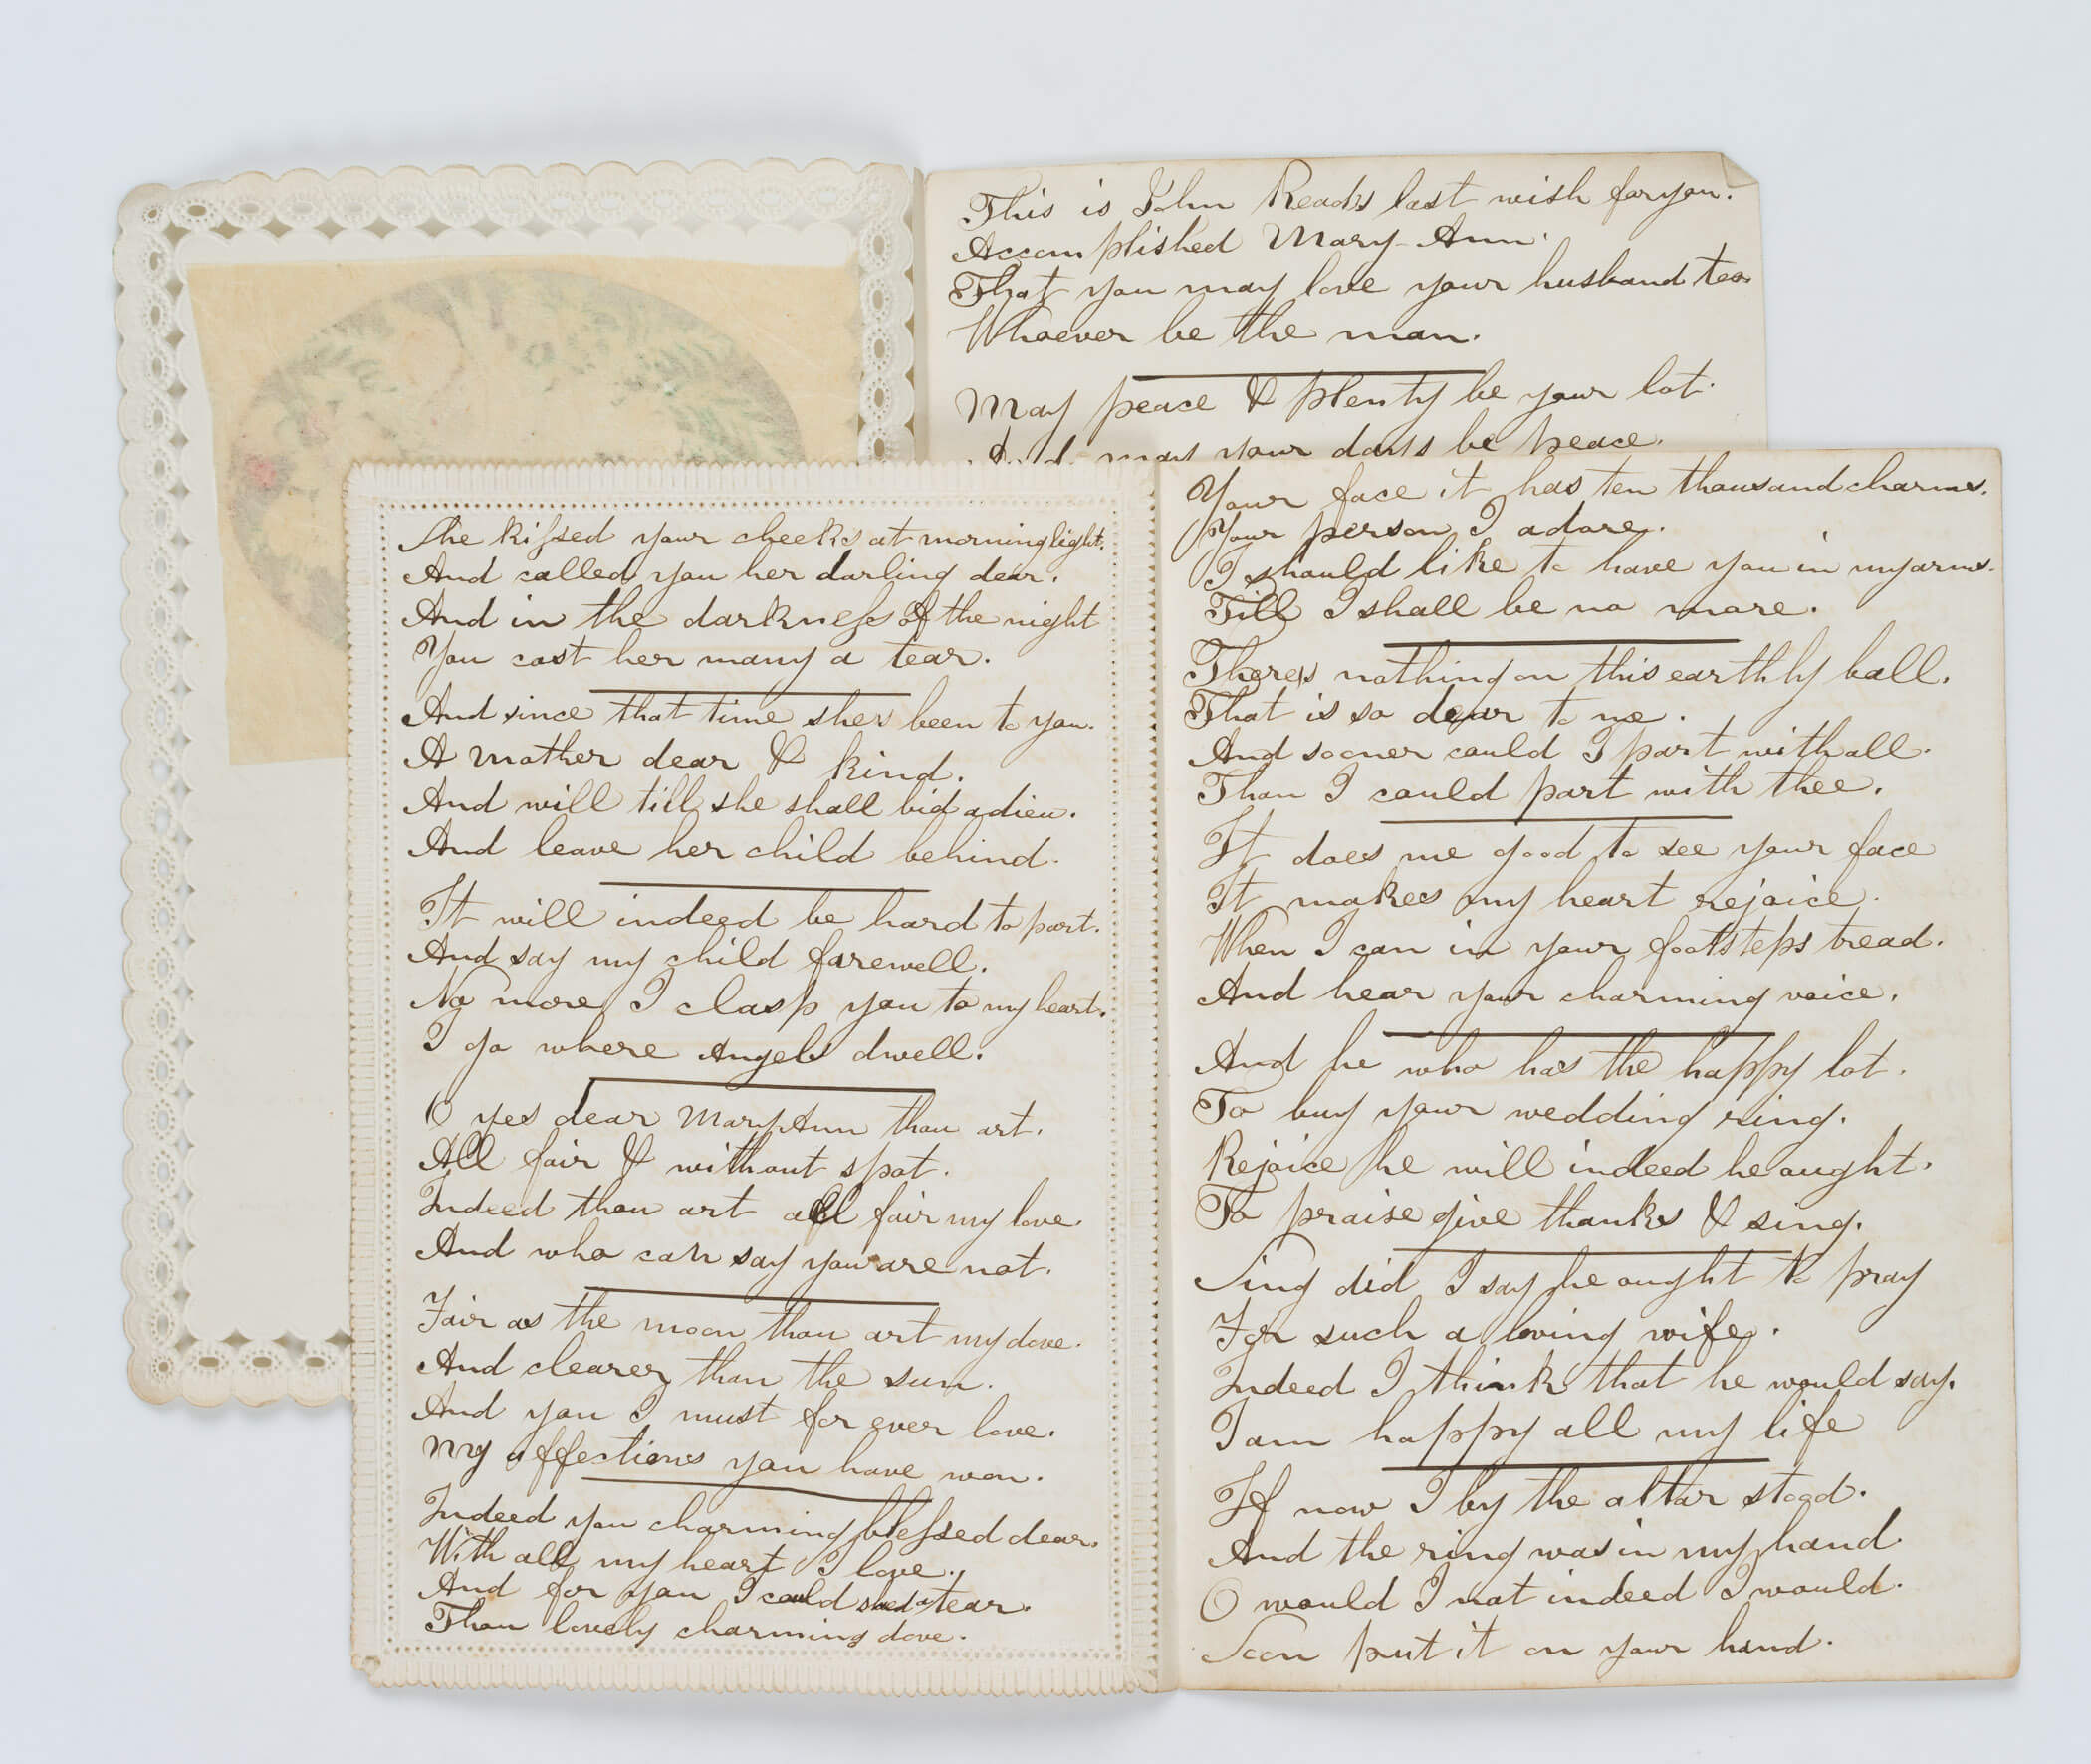 This is John Reads last wish for you.
Accomplished Mary Ann.
That you may love your husband too.
Whoever be the man.
May peace & plenty be your lot.
And may your days be peace.
She kissed your cheeks at morning light.
And called you her darling dear.
And in the darkness of the night
You cost her many a tear.
And since that time shes been to you.
A Mother dear & kind.
And will till she shall bid adieu.
And leave her child behind.
It will indeed be hard to part.
And say my child farewell.
No more I clasp you to my heart.
I go where Angels dwell.
O yes dear Mary Ann thou art.
All fair & without spot.
Indeed thou art all fair my love.
And who can say you are not.
Fair as the moon thou art my dove.
And clearer than the sun.
And you I must for ever love.
My affections you have won.
Indeed you charming blessed dear.
With all my heart I love.
And for you I could shed a tear.
Thou lovely charming dove.
Your face it has ten thousand charms.
Your person I adore.
I should like to have you in my arms.
Till I shall be no more.
Theres nothing on this earthly ball.
That is so dear to me.
And sooner could I part with all.
Than I could part with thee.
It does me good to see your face
It makes my heart rejoice.
When I can in your footsteps tread.
And hear your charming voice.
And he who has the happy lot.
To buy your wedding ring.
Rejoice he will indeed he ought.
To praise give thanks & sing.
Sing did I say he ought to pray
For such a loving wife.
Indeed I think that he would say.
I am happy all my life
If now I by the altar stood.
And the ring was in my hand.
O would I not indeed I would.
Soon put it on your hand.